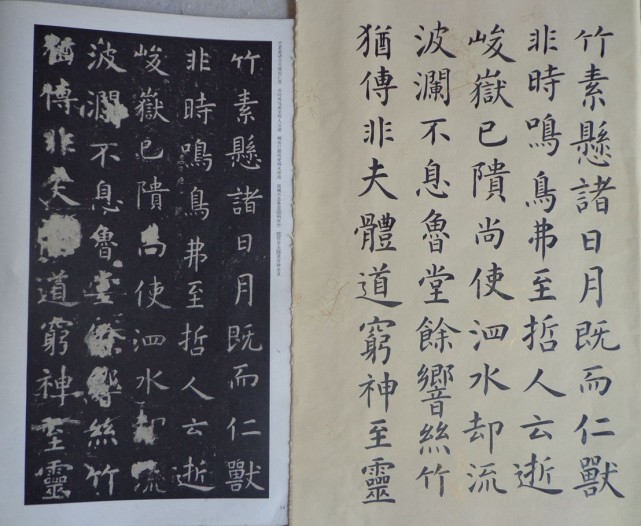 竹素懸諸日月既而仁獸
非時鳴鳥弗至哲人云逝
峻嶽已隤尚使泗水却流
波瀾不息魯堂餘響絲竹
猶傳非夫體道窮神至靈
竹素懸諸日月既而仁獸
非時鳴鳥弗至哲人云逝
峻嶽已隤尚使泗水却流
波瀾不息魯堂餘響絲竹
猶傳非夫道窮神至靈